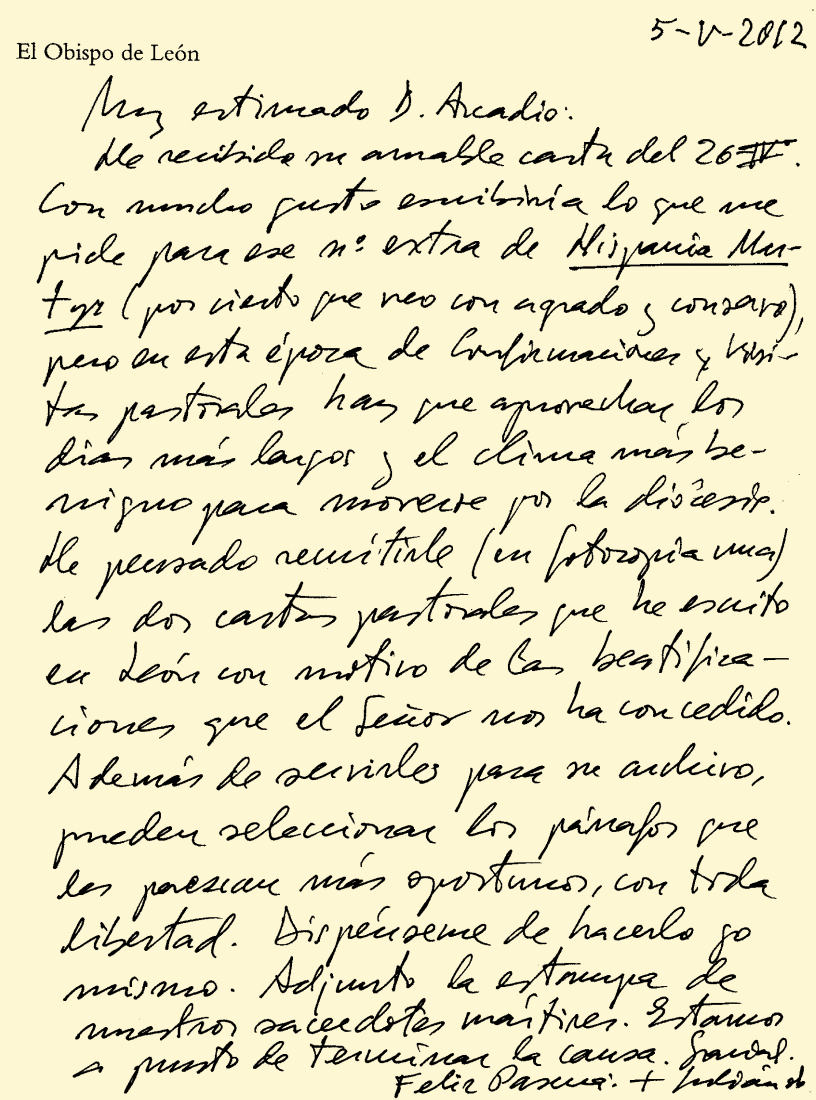 5-V-2012
El Obispo de León
Muy estimado D. Arcadio:
He recibido su amable carta del 26-IV.
Con mucho gusto escribiría lo que me
pide para ese nº extra de Hispania Mar-
tyr (por cierto que veo con agrado y conservo),
pero en esta época de Confirmaciones y Visi-
tas pastorales hay que aprovechar los
días más largos y el clima más be-
nigno para moverse por la diócesis.
He pensado remitirle (en fotocopia una)
las dos cartas pastorales que he escrito
en León con motivo de las beatifica-
ciones que el Señor nos ha concedido.
Además de servirles para su archivo,
pueden seleccionar los párrafos que
les parezcan más oportunos, con toda
libertad. Dispénseme de hacerlo yo
mismo. Adjunto la estampa de
nuestros sacerdotes mártires. Estamos
a punto de terminar la causa.
Feliz Pascua. + Julián